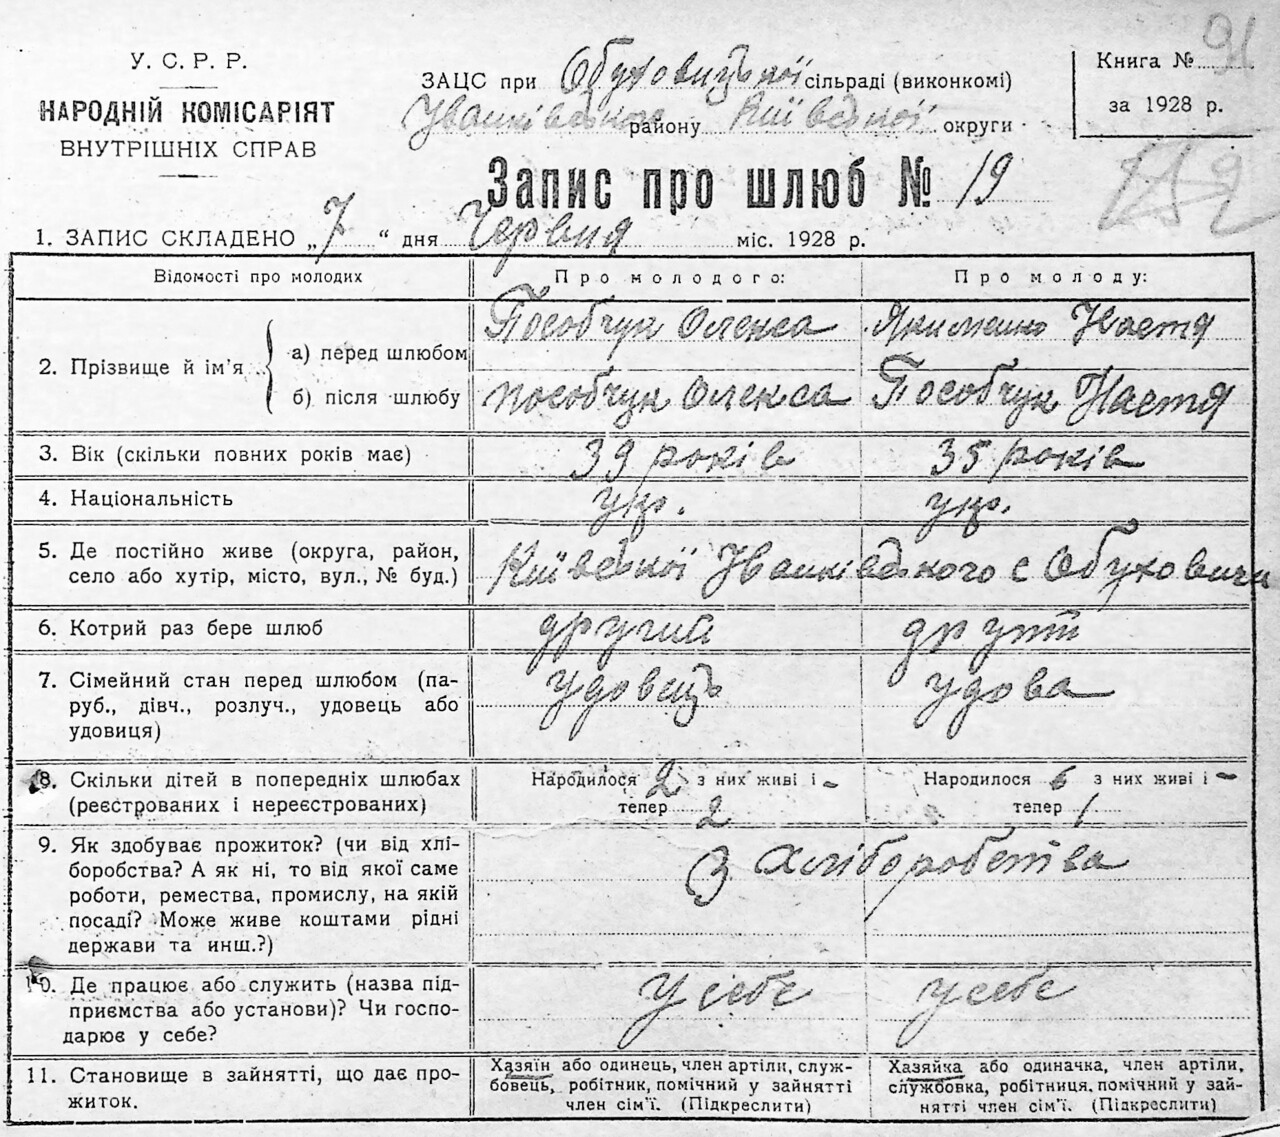 91
У. С. Р. Р.
НАРОДНІЙ КОМІСАРІЯТ
ВНУТРІШНІХ СПРАВ
ЗАЦС при Обуховицької сільраді (виконкомі)
Іванківського району Київської округи
Книга №
за 1928 р.
Запис про шлюб № 19
1. ЗАПИС СКЛАДЕНО „7“ дня Червня міс. 1928 р.
Відомості про молодих
Про молодого:
Про молоду:
2. Прізвище й ім'я
а) перед шлюбом
Пособчук Олекса
Якименко Настя
б) після шлюбу
Пособчук Олекса
Пособчук Настя
3. Вік (скільки повних років має)
39 років
35 років
4. Національність
укр.
укр.
5. Де постійно живе (округа, район,
село або хутір, місто, вул., № буд.)
Київської Іванківського с Обуховичи
6. Котрий раз бере шлюб
другий
другий
7. Сімейний стан перед шлюбом (па-
руб., дівч., розлуч., удовець або
удовиця)
удовець
удова
8. Скільки дітей в попередніх шлюбах
(реєстрованих і нереєстрованих)
Народилося 2 з них живі і
тепер 2
Народилося 6 з них живі і
тепер 1
9. Як здобуває прожиток? (чи від хлі-
боробства? А як ні, то від якої саме
роботи, ремества, промислу, на якій
посаді? Може живе коштами рідні
держави та инш.?)
З хліборобства
10. Де працює або служить (назва під-
приємства або установи)? Чи госпо-
дарює у себе?
У себе
у себе
11. Становище в зайнятті, що дає про-
житок.
Хазяїн або одинець, член артіли, служ-
бовець, робітник, помічний у зайнятті
член сім'ї. (Підкреслити)
Хазяйка або одиначка, член артіли,
службовка, робітниця, помічний у зай-
нятті член сім'ї. (Підкреслити)